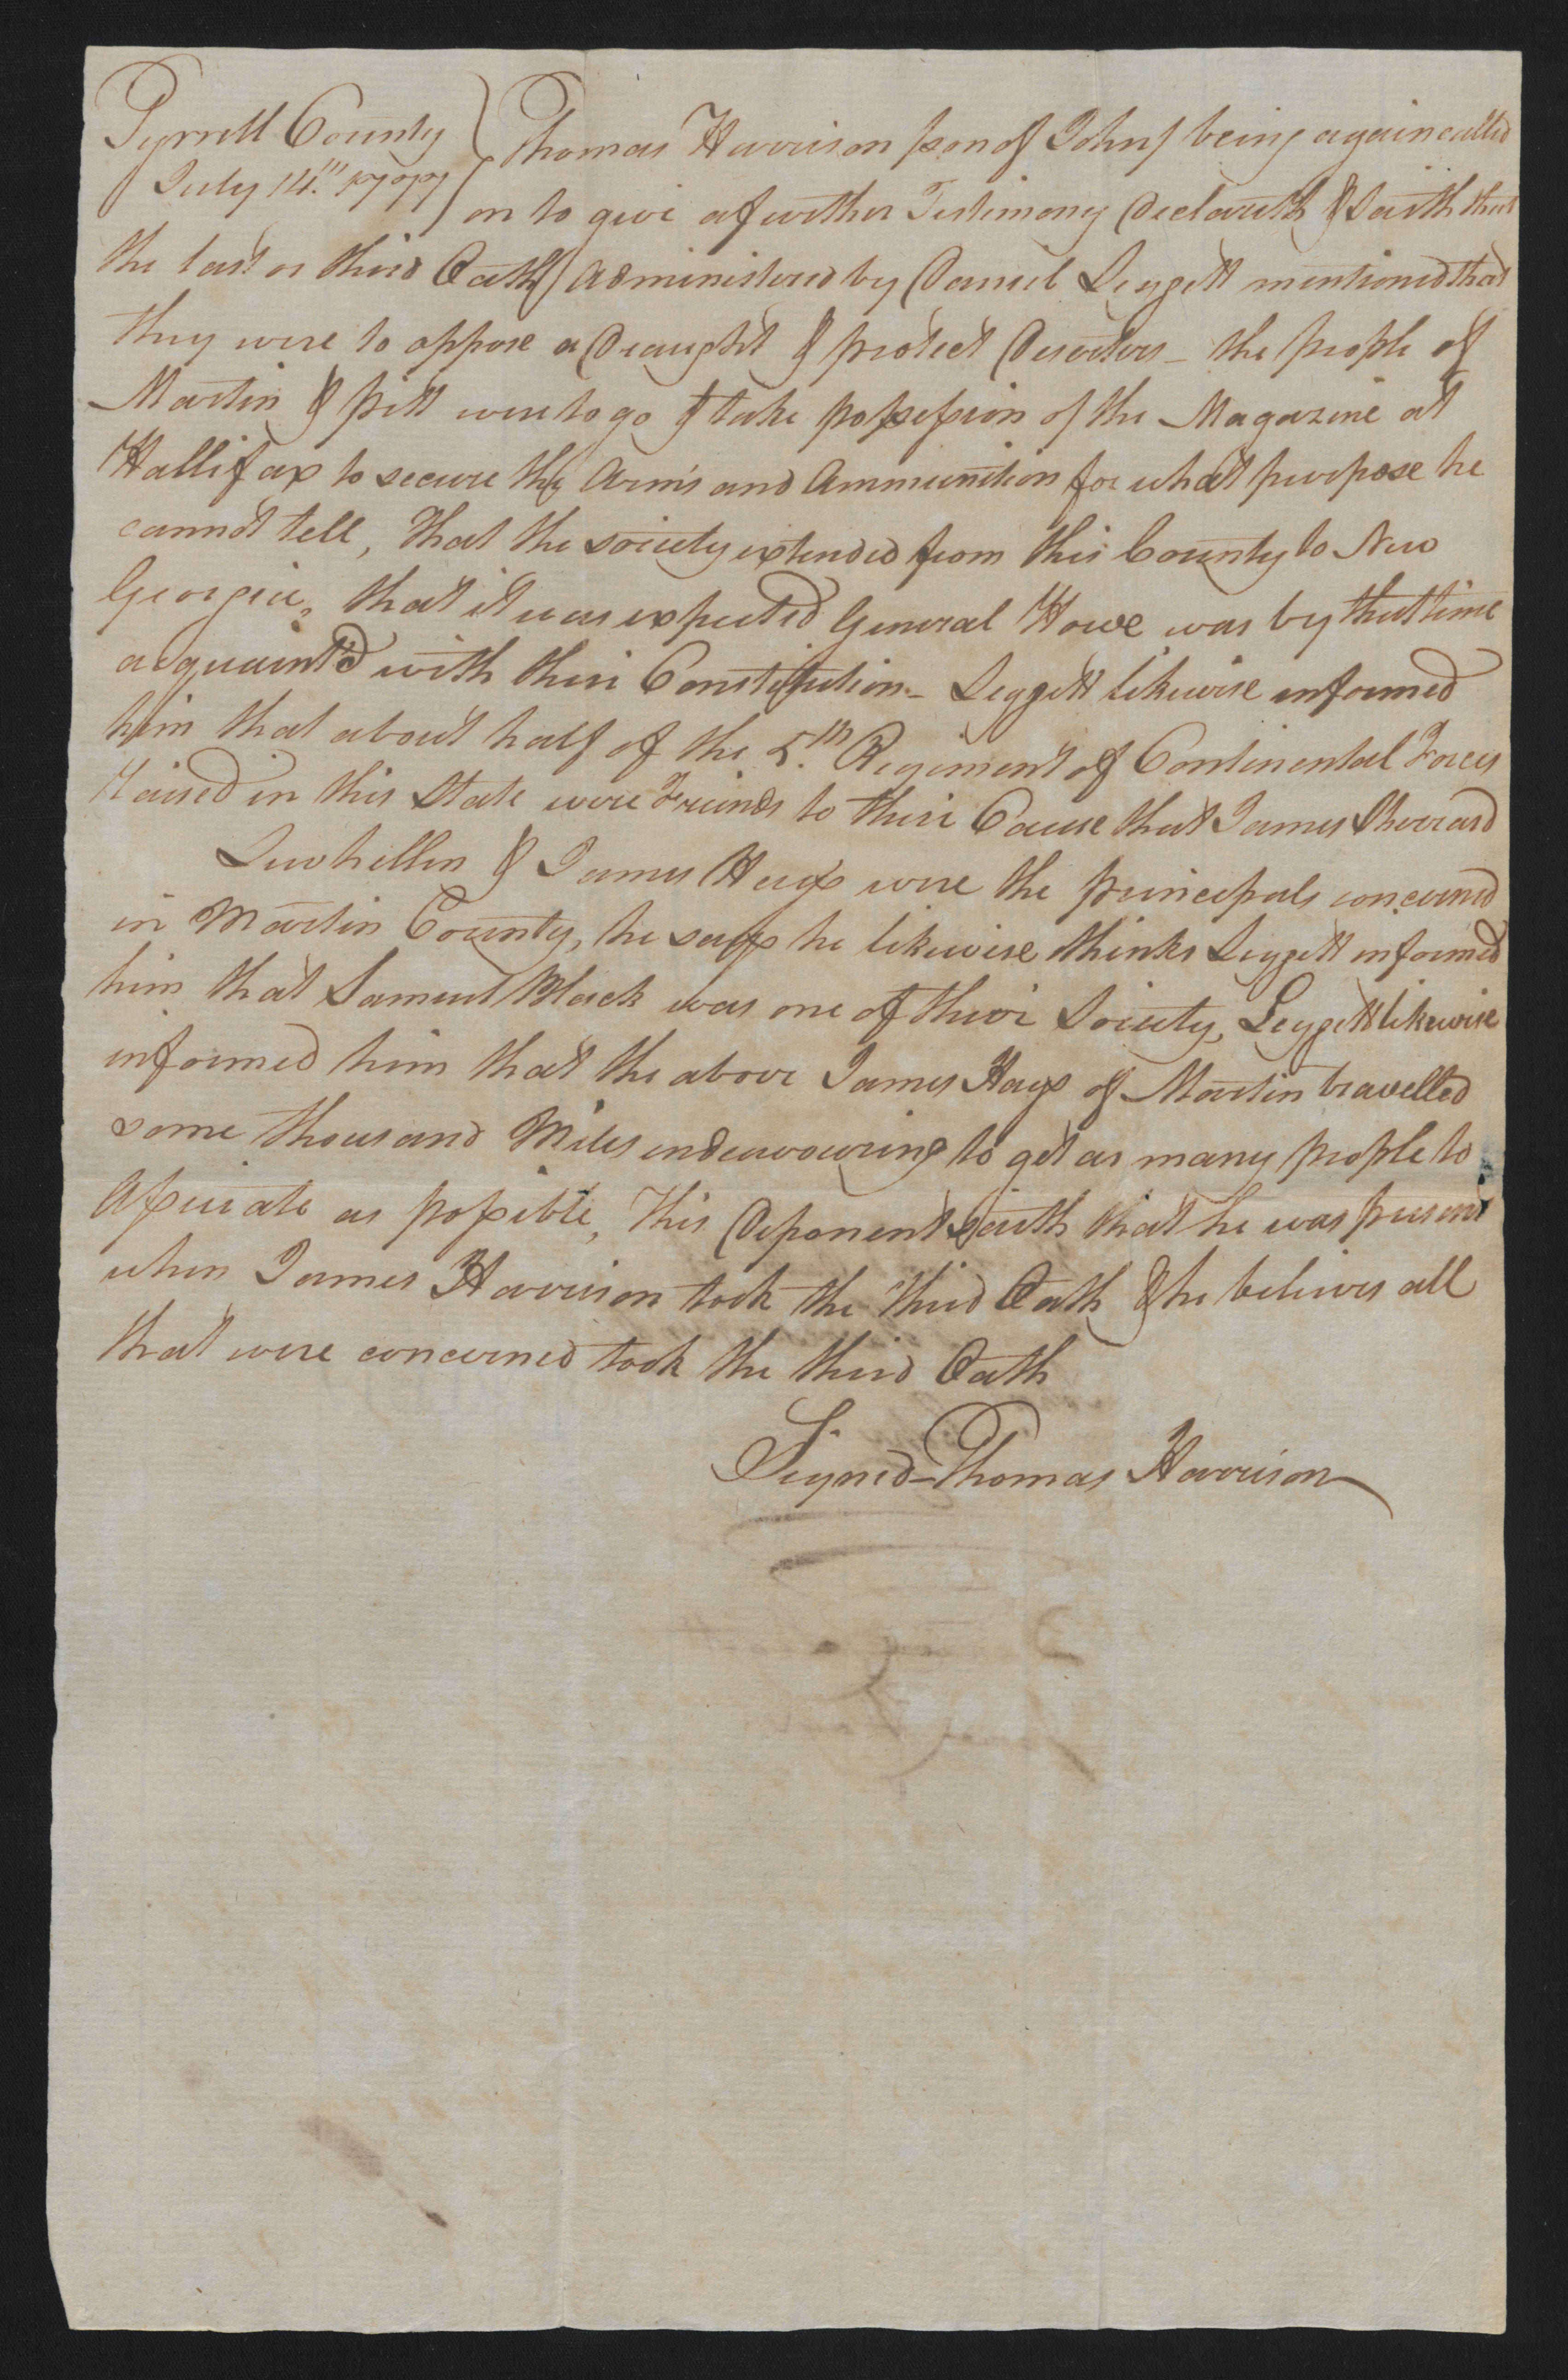 Tyrrell County
July 14th 1777
Thomas Harrison son of John being again called
on to give a further Testimony Declareth & Saith that
the last or third Oath Administered by Daniel Leggett mentioned that
they were to oppose a Draught & protect Deserters – the people of
Martin & pitt were to go & take possession of the Magazine at
Hallifax to secure the Arms and Ammunition for what purpose he
cannot tell, that the society extended from this County to New
Georgia, that it was expected General Howe was by that time
acquaint'd with their Constitution – Leggett likewise informed
him that about half of the 5th Regiment of Continental Forces
raised in this State were Friends to their Cause that James Sherrard
Lewhellin & James Hays were the principals concerned
in Martin County, he says he likewise thinks Leggett informed
him that Samuel Black was one of their Society, Leggett likewise
informed him that the above James Hays of Martin travelled
some thousand Miles endeavouring to get as many people to
Associate as possible, This Deponent Saith that he was present
when James Harrison took the third Oath & he believes all
that were concerned took the third Oath
Signed – Thomas Harrison